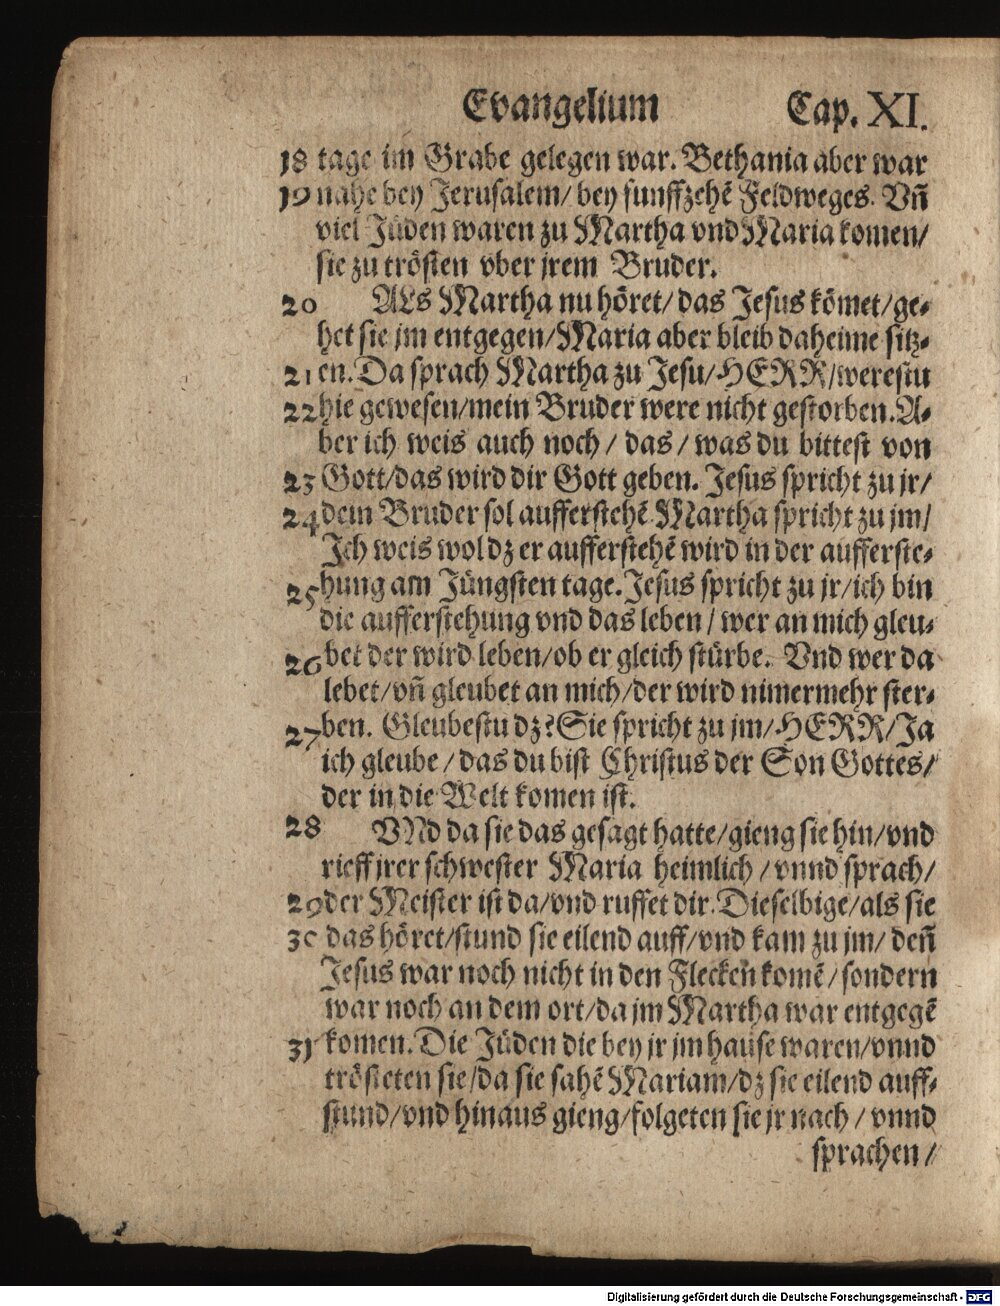 Evangelium Cap. XI.
18 tage im Grabe gelegen war. Bethania aber war
19 nahe bey Jerusalem/ bey funffzehẽ Feldweges. Vñ
viel Jüden waren zu Martha vnd Maria komen/
sie zu trösten vber jrem Bruder.
20 ALs Martha nu höret/ das Jesus kömet/ ge-
het sie jm entgegen/ Maria aber bleib daheime sitz-
21 en. Da sprach Martha zu Jesu/ HERR/ werestu
22 hie gewesen/ mein Bruder were nicht gestorben. A-
ber ich weis auch noch/ das/ was du bittest von
23 Gott/ das wird dir Gott geben. Jesus spricht zu jr/
24 dein Bruder sol aufferstehẽ Martha spricht zu jm/
Jch weis wol dz er aufferstehẽ wird in der aufferste-
25 hung am Jüngsten tage. Jesus spricht zu jr/ ich bin
die aufferstehung vnd das leben/ wer an mich gleu-
26 bet der wird leben/ ob er gleich stürbe. Vnd wer da
lebet/ vñ gleubet an mich/ der wird nimermehr ster-
27 ben. Gleubestu dz? Sie spricht zu jm/ HERR/ Ja
ich gleube/ das du bist Christus der Son Gottes/
der in die Welt komen ist.
28 VNd da sie das gesagt hatte/ gieng sie hin/ vnd
rieff jrer schwester Maria heimlich/ vnnd sprach/
29 der Meister ist da/ vnd ruffet dir. Dieselbige/ als sie
30 das höret/ stund sie eilend auff/ vnd kam zu jm/ deñ
Jesus war noch nicht in den Flecken komẽ/ sondern
war noch an dem ort/ da jm Martha war entgegẽ
31 komen. Die Jüden die bey jr jm hause waren/ vnnd
trösteten sie/ da sie sahẽ Mariam/ dz sie eilend auff-
stund/ vnd hinaus gieng/ folgeten sie jr nach/ vnnd
sprachen/
Digitalisierung gefördert durch die Deutsche Forschungsgemeinschaft - DFG